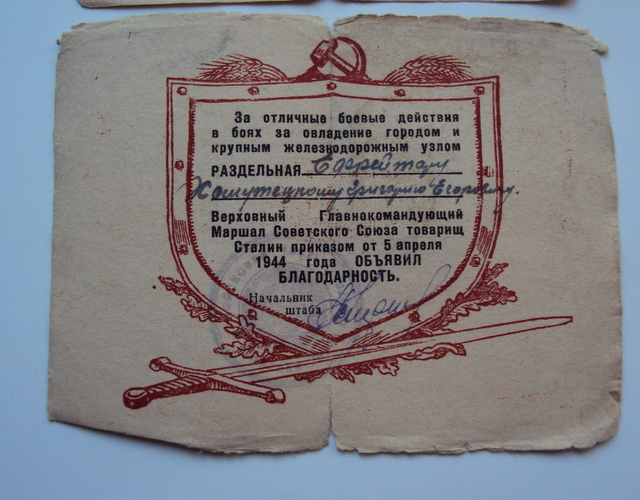 За отличные боевые действия
в боях за овладение городом и
крупным железнодорожным узлом
РАЗДЕЛЬНАЯ Ефрейтору
Хомутецкому Григорию Егоровичу.
Верховный Главнокомандующий
Маршал Советского Союза товарищ
Сталин приказом от 5 апреля
1944 года ОБЪЯВИЛ
БЛАГОДАРНОСТЬ.
Начальник
штаба